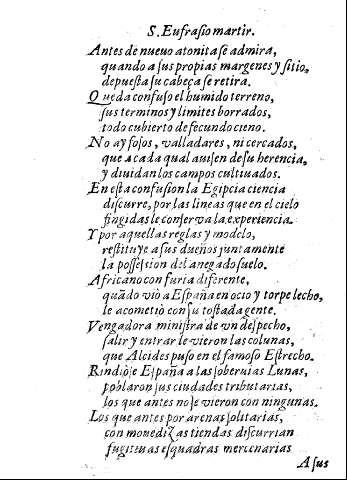 S. Eufrasio martir.
Antes de nueuo atonita se admira,
quando a sus propias margenes y sitio,
depuesta su cabeça se retira.
Queda confuso el humido terreno,
sus terminos y limites borrados,
todo cubierto de fecundo cieno.
No ay fosos, valladares, ni cercados,
que a cada qual auisen de su herencia,
y diuidan los campos cultiuados.
En esta confusion la Egipcia ciencia
discurre, por las lineas que en el cielo
fingidas le conserva la experiencia.
Y por aquellas reglas y modelo,
restituye a sus dueños juntamente
la possession del anegado suelo.
Africano con furia diferente,
quãdo vio a España en ocio y torpe lecho,
le acometio con su tostada gente.
Vengadora ministra de vn despecho,
salir y entrar le vieron las colunas,
que Alcides puso en el famoso Estrecho.
Rindiose España a las soberuias Lunas,
poblaron sus ciudades tributarias,
los que antes no se vieron con ningunas.
Los que antes por arenas solitarias,
con mouedizas tiendas discurrian
fugitiuas esquadras mercenarias
A sus